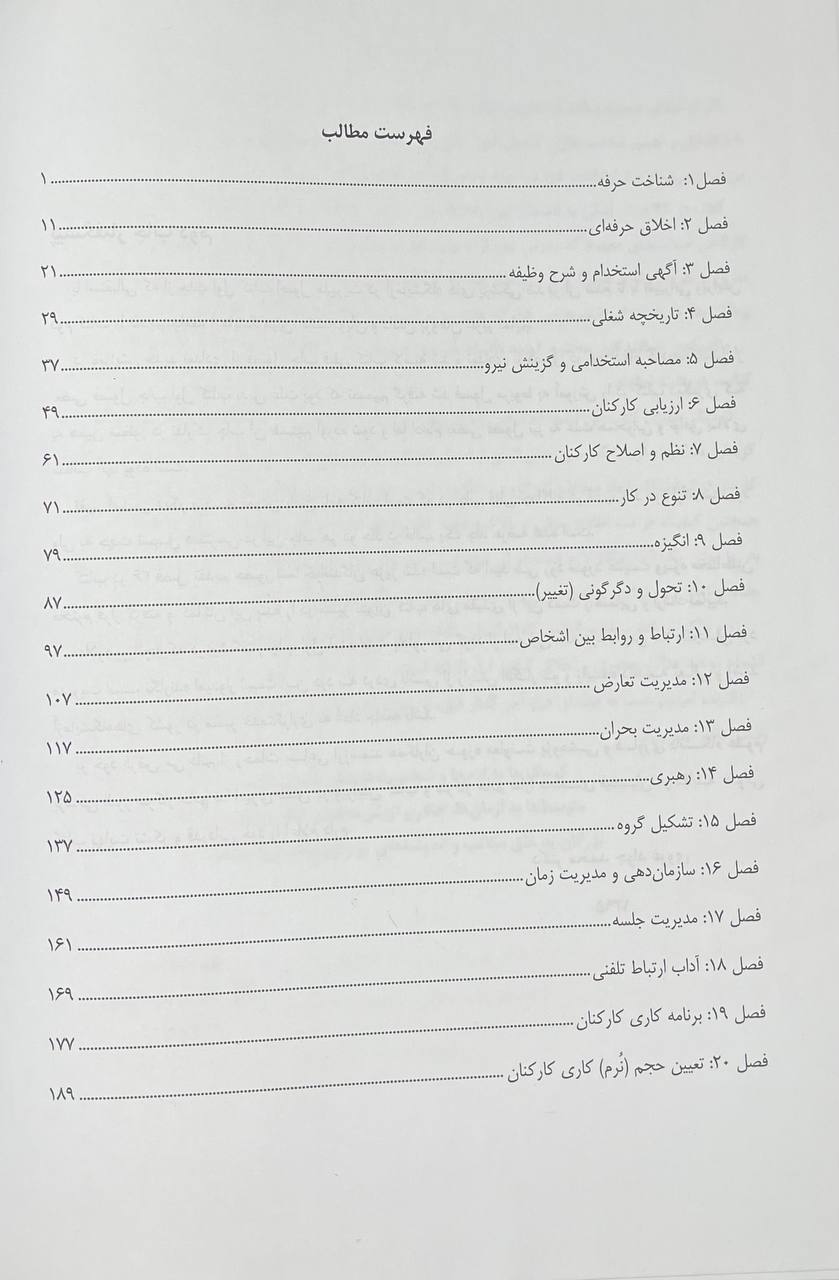 فهرست مطالب
فصل ۱: شناخت حرفه ۱
فصل ۲: اخلاق حرفه‌ای ۱۱
فصل ۳: آگهی استخدام و شرح وظیفه ۲۱
فصل ۴: تاریخچه شغلی ۲۹
فصل ۵: مصاحبه استخدامی و گزینش نیرو ۳۷
فصل ۶: ارزیابی کارکنان ۴۹
فصل ۷: نظم و اصلاح کارکنان ۶۱
فصل ۸: تنوع در کار ۷۱
فصل ۹: انگیزه ۷۹
فصل ۱۰: تحول و دگرگونی (تغییر) ۸۷
فصل ۱۱: ارتباط و روابط بین اشخاص ۹۷
فصل ۱۲: مدیریت تعارض ۱۰۷
فصل ۱۳: مدیریت بحران ۱۱۷
فصل ۱۴: رهبری ۱۲۵
فصل ۱۵: تشکیل گروه ۱۳۷
فصل ۱۶: سازمان‌دهی و مدیریت زمان ۱۴۹
فصل ۱۷: مدیریت جلسه ۱۶۱
فصل ۱۸: آداب ارتباط تلفنی ۱۶۹
فصل ۱۹: برنامه کاری کارکنان ۱۷۷
فصل ۲۰: تعیین حجم (نُرم) کاری کارکنان ۱۸۹